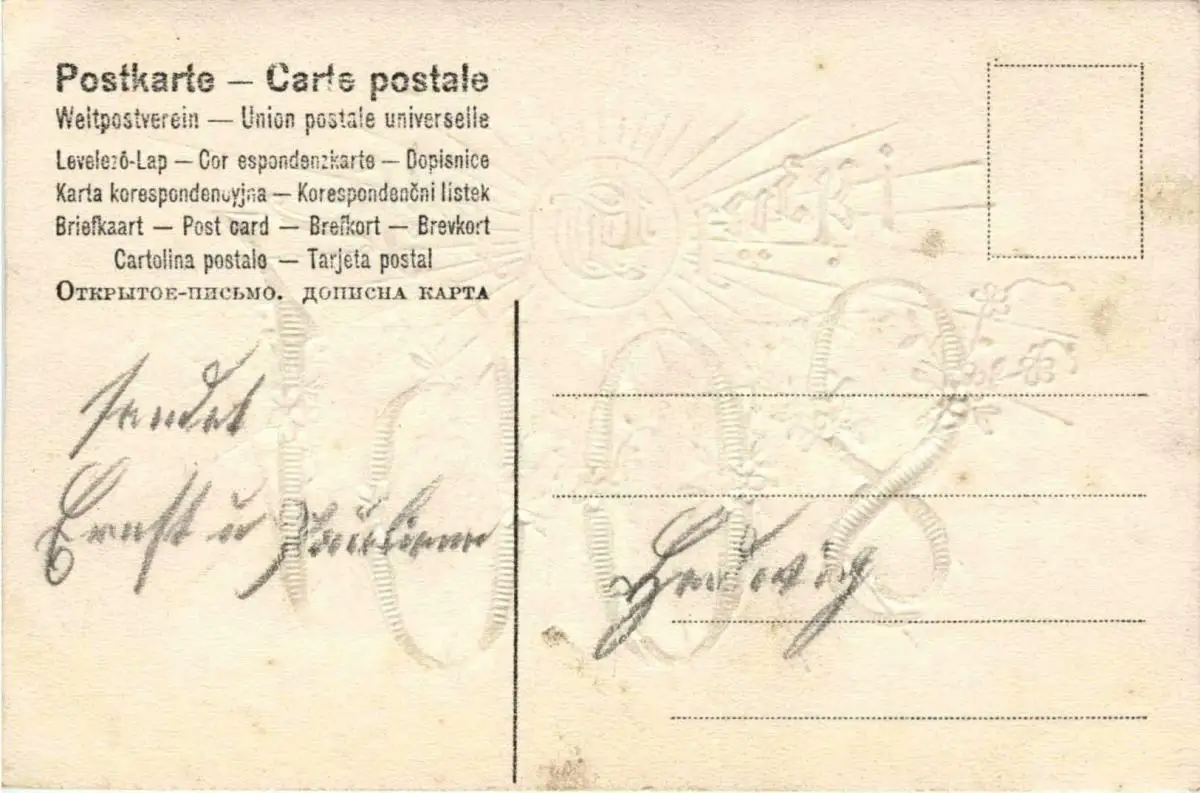 Postkarte — Carte postale
Weltpostverein — Union postale universelle
Levelező-Lap — Cor espondenzkarte — Dopisnice
Karta korespondencyjna — Korespondenčni listek
Briefkaart — Post card — Brefkort — Brevkort
Cartolina postale — Tarjeta postal
Открытое-письмо. дописна карта
sendet
Ernst u
Hedwig